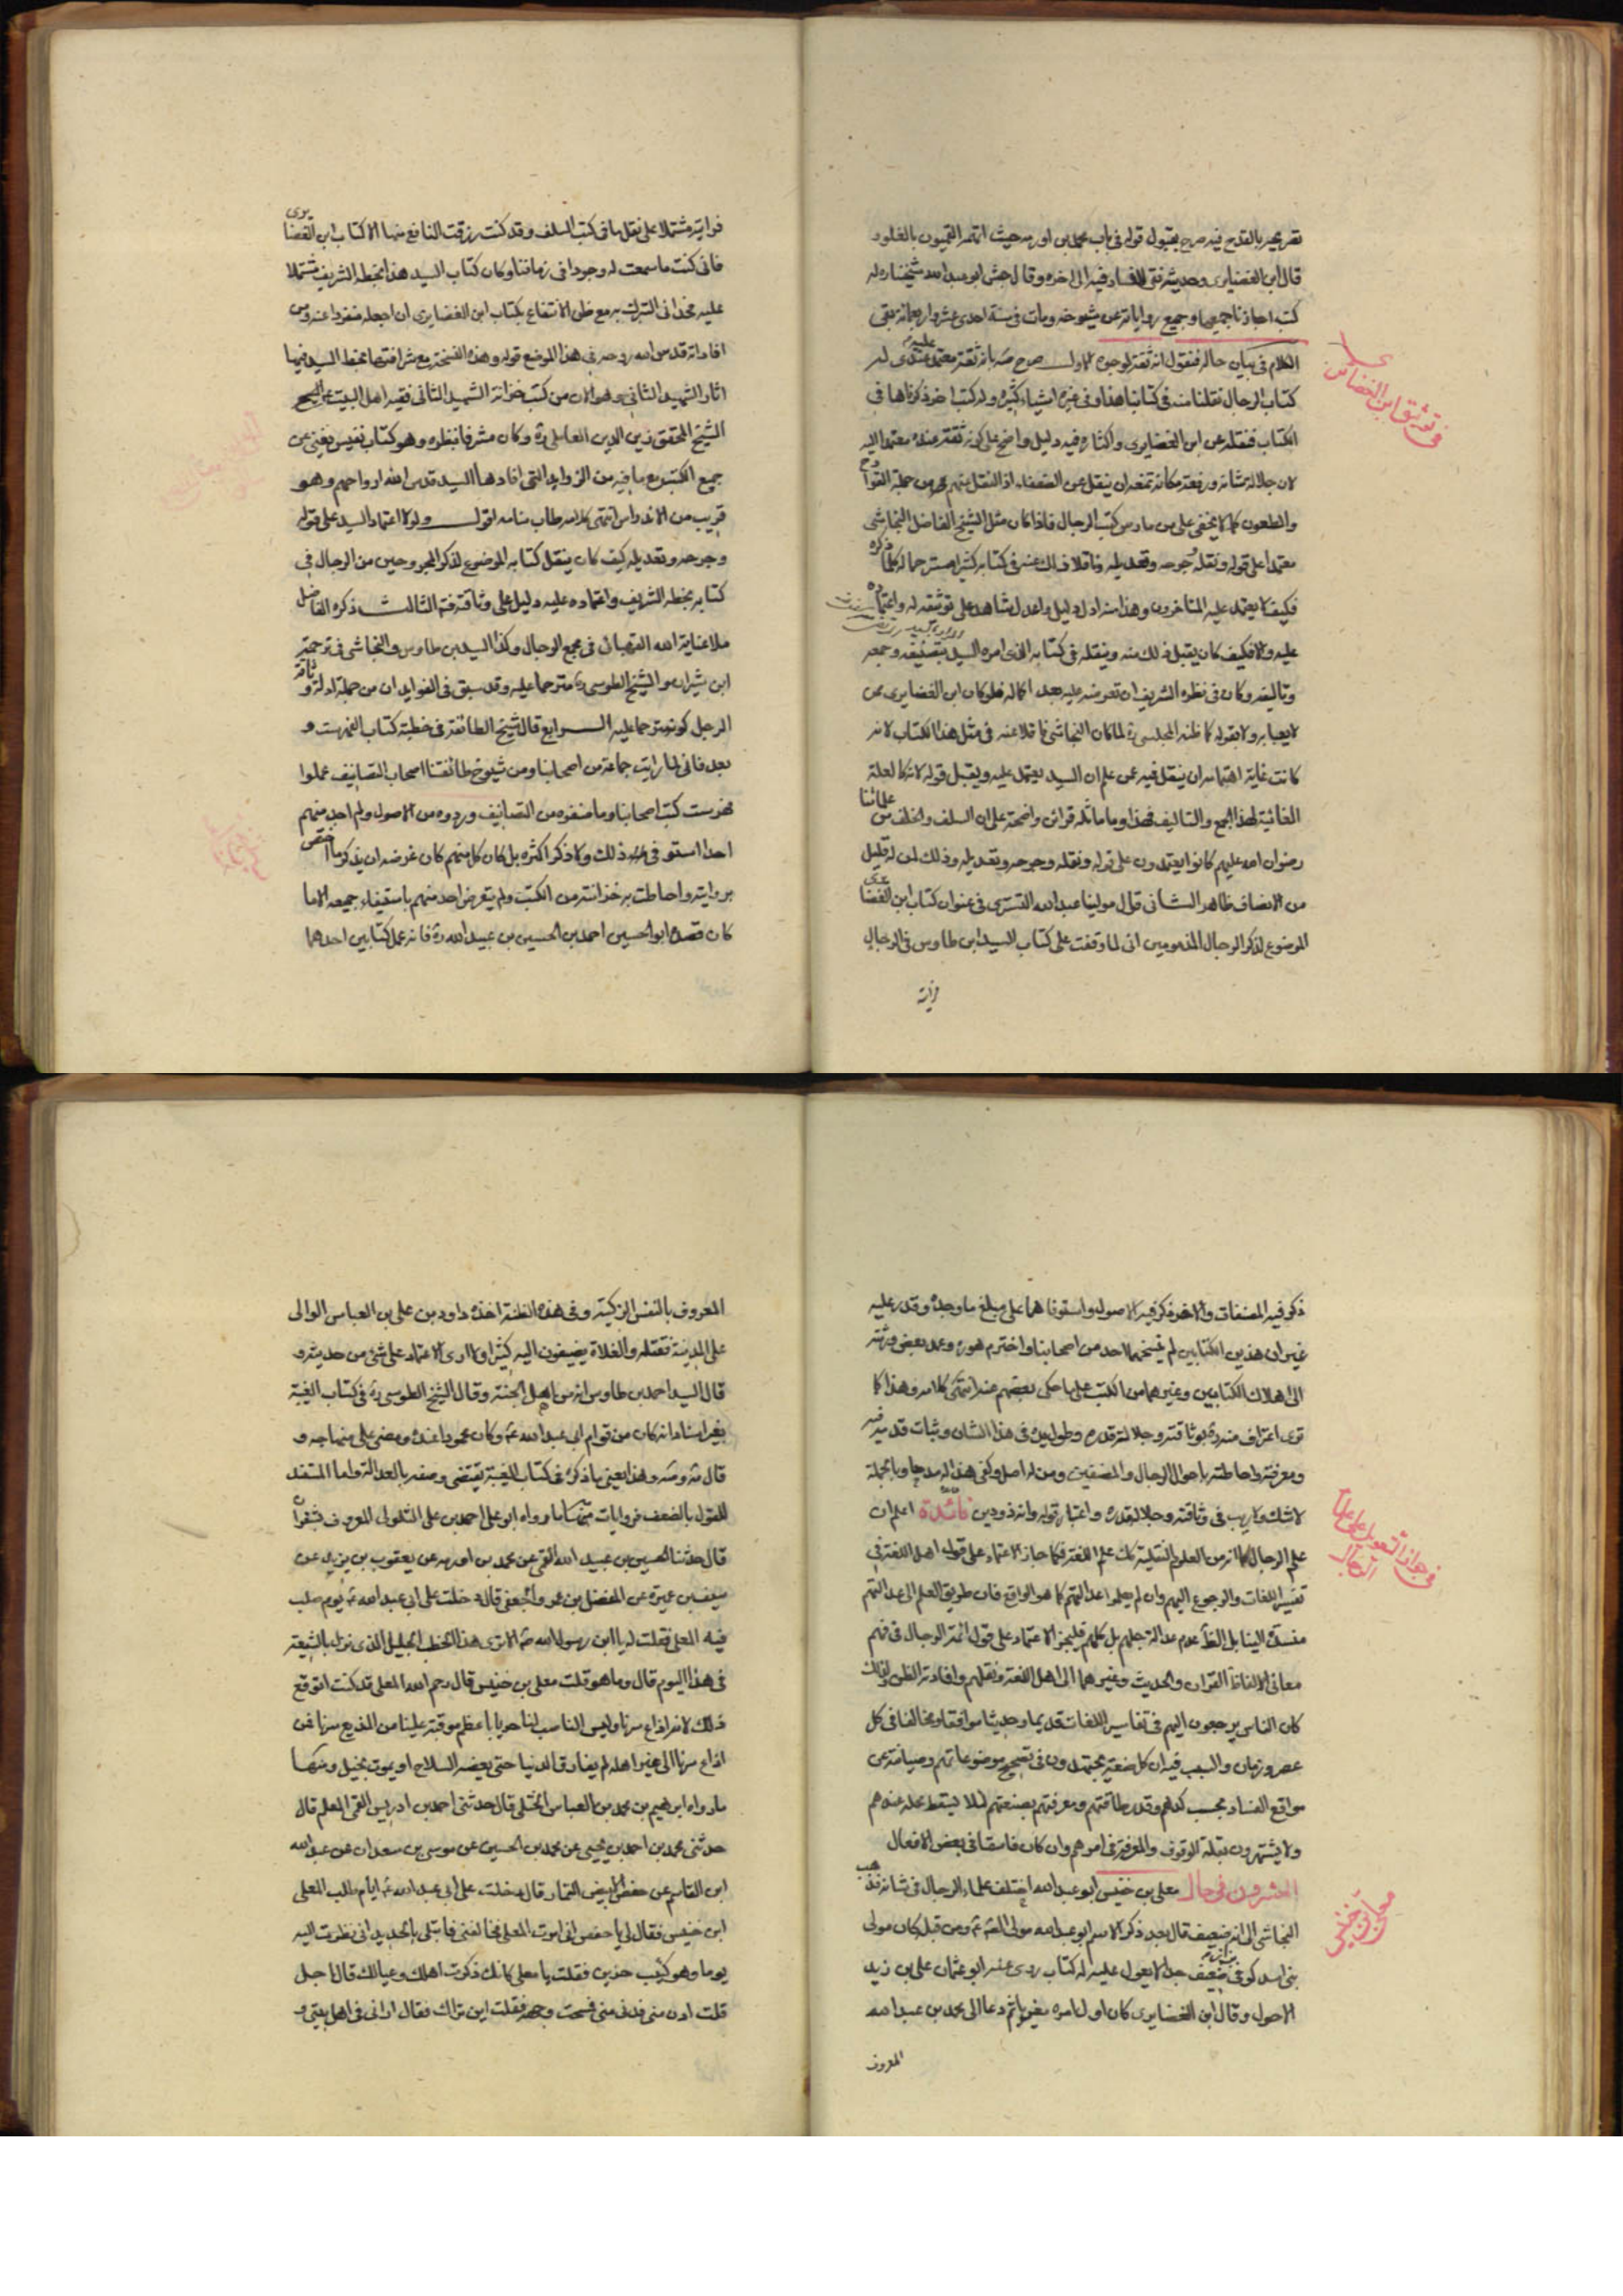 تصريحه بالقدح فيه صرح بقبول قوله في باب محمد بن اورمه حيث اتهم القميون بالغلو و
قال ابن الغضايرى وحديثه نقى لا فساد فيه الى اخره وقال جش ابو عبد الله شيخنا ره له
كتب اجازنا جميعها وجميع رواياته عن شيوخه ومات في سنة احدى عشر واربعمائة بقى
الكلام في بيان حاله فنقول انه ثقة لوجوه الاول صرح بانه ثقة معتمد عليه عندى له
كتاب الرجال نقلنا منه في كتابنا هذا وفي غيره اشياء كثيره وله كتب اخر ذكرناها في
الكتاب فنقله عن ابن الغضايرى واكثاره فيه دليل واضح على كونه ثقة عنده معتمدا اليه
لان جلالة شانه ورفعة مكانه تمنعه ان ينقل عن الضعفاء اذ النقل منهم من جملة القوادح
والطعون كما لا يخفى على من مارس كتب الرجال فاذا كان مثل الشيخ الفاضل النجاشى
معتمدا على قوله ونقله وجرحه وتعديله وناقلا ذلك عنه في كتابه كثيرا مسترحما له كلما ذكره
فكيف لا يعتمد عليه المتاخرون وهذا منه ادل دليل واعدل شاهد على توثيقه له واعتماده
عليه والا فكيف كان يقبل ذلك منه وينقله في كتابه الذى امره السيد بتصنيفه وجمعه
وتاليفه وكان في نظره الشريف ان تعرضه عليه بعد اكماله فلو كان ابن الغضايرى ممن
لا يعبا به ولا بقوله كما ظنه المجلسى ره لما كان النجاشى ناقلا عنه في مثل هذا الكتاب لانه
كانت غاية اهتمامه ان ينقل فيه عمن علم ان السيد يعتمد عليه ويقبل قوله لانه كالعلة
الغائية لهذا الجمع والتاليف فهذا وما ماثله قرائن واضحة على ان السلف والخلف من علمائنا
رضوان الله عليهم كانوا يعتمدون على قوله ونقله وجرحه وتعديله وذلك لمن له قليل
من الانصاف ظاهر الثانى قال مولينا عبد الله التسترى في عنوان كتاب ابن الغضايرى
الموضوع لذكر الرجال المذمومين انى لما وقفت على كتاب السيد ابن طاوس في الرجال
فرايته
في توثيق ابن الغضايرى
فرايته مشتملا على نقل ما في كتب السلف وقد كنت رزقت النافع منها الا كتاب ابن الغضايرى
فانى كنت ما سمعت له وجودا في زماننا وكان كتاب السيد هذا بخطه الشريف مشتملا
عليه فحدانى التبرك به مع ظن الانتفاع بكتاب ابن الغضايرى ان اجعله منفردا عنه ومن
افاداته قدس الله روحه في هذا الموضع قوله وهذه النسخة مع شرافتها بخط السيد فيها
اثار الشهيد الثانى وهو الان من كتب خزانة الشهيد الثانى فقيه اهل البيت
الشيخ المحقق زين الدين العاملى ره وكان مشرفا بنظره وهو كتاب نفيس يغنى عن
جميع الكتب مع ما فيه من الزوايد التى افادها السيد قدس الله ارواحهم وهو
قريب من الاندراس انتهى كلامه طاب منامه اقول ولولا اعتماد السيد على قوله
وجرحه وتعديله كيف كان ينقل كتابه الموضوع لذكر المجروحين من الرجال في
كتابه بخطه الشريف واعتماده عليه دليل على وثاقته فتم الثالث ذكره الفاضل
ملا عناية الله القهبائى في مجمع الرجال وكذا السيد بن طاوس والنجاشى في ترجمة
ابن شيران والشيخ الطوسى ره مترحما عليه وقد سبق في الفوايد ان من جملة ادلة وثاقة
الرجل كونه مترحما عليه الرابع قال شيخ الطائفة في خطبة كتاب الفهرست و
بعد فانى لما رايت جماعة من اصحابنا ومن شيوخ طائفتنا اصحاب التصانيف عملوا
فهرست كتب اصحابنا وما صنفوه من التصانيف ورووه من الاصول ولم اجد منهم
احدا استوفى ذلك ولا ذكر اكثره بل كان كل منهم كان غرضه ان يذكر ما اختص
بروايته واحاطت به خزانته من الكتب ولم يتعرض احد منهم باستيفاء جميعه الا ما
كان قصده ابو الحسين احمد بن الحسين بن عبيد الله ره فانه عمل كتابين احدهما
ذكر فيه المصنفات والاخر ذكر فيه الاصول واستوفاهما على مبلغ ما وجده وقدر عليه
غير ان هذين الكتابين لم ينسخهما احد من اصحابنا واخترم هو ره وعمد بعض ورثته
الى اهلاك الكتابين وغيرهما من الكتب على ما حكى بعضهم عنه انتهى كلامه وهذا كما
ترى اعتراف منه ره بوثاقته وجلالة قدره وطول يده في هذا الشان وثبات قدميه فيه
ومعرفته واحاطته باحوال الرجال والمصنفين ومن له اصل وكفى هذا له مدحا وبالجملة
لا شك ولا ريب في وثاقته وجلالة قدره واعتبار قوله وانه ذو دين فائدة اعلم ان
علم الرجال كما انه من العلوم النقلية كعلم اللغة فكما جاز الاعتماد على قول اهل اللغة في
تفسير اللغات والرجوع اليهم وان لم يعلموا عدالتهم كما هو الواقع فان طريق العلم الى عدالتهم
منسد الينا بل الظ عدم عدالة جلهم بل كلهم فليجز الاعتماد على قول ائمة الرجال في فهم
معانى الالفاظ القران والحديث وغيرهما الى اهل اللغة ونقلهم وافادته الظن ولذلك
كان الناس يرجعون اليهم في تفاسير اللغات قديما وحديثا موافقا ومخالفا في كل
عصر وزمان والسبب فيه ان كل صنعة يجتهدون في تصحيح موضوعاتهم وصيانته عن
مواقع الفساد بحسب كدهم وقدر طاقتهم ومعرفتهم بصنعتهم لئلا يسقط محله عندهم
ولا يشتهرون بقلة الوقوف والمعرفة في امورهم وان كان فاسقا في بعض الافعال
العشرون في حال معلى بن خنيس ابو عبد الله اختلف علماء الرجال في شانه فذهب
النجاشى الى انه ضعيف قال بعد ذكر الاسم ابو عبد الله مولى الصادق ع ومن قبله كان مولى
بنى اسد كوفى بزاز ضعيف جدا لا يعول عليه له كتاب روى عنه ابو عثمان على بن زيد
الاحول وقال ابن الغضايرى كان اول امره مغيريا ثم دعا الى محمد بن عبد الله
المعروف
في جواز التعويل على علماء الرجال
معلى بن خنيس
المعروف بالنفس الزكية وفي هذه الظنة اخذه داود بن على بن العباس الوالى
على المدينة فقتله والغلاة يضيفون اليه كثيرا ولا ارى الاعتماد على شئ من حديثه و
قال السيد احمد بن طاوس انه من اهل الجنة وقال الشيخ الطوسى ره في كتاب الغيبة
بغير اسناد انه كان من قوام ابى عبد الله ع وكان محمودا عنده ومضى على منهاجه و
قال وهذا يعنى ما ذكره في كتاب الغيبة يقتضى وصفه بالعدالة واما المستند
للقول بالضعف فروايات منها ما رواه ابو على احمد بن على السلولى المعروف بشقران
قال حدثنا الحسين بن عبيد الله القمى عن محمد بن اورمه عن يعقوب بن يزيد عن
سيف بن عميرة عن المفضل بن عمرو الجعفى قال دخلت على ابى عبد الله ع يوم صلب
فيه المعلى فقلت له يا ابن رسول الله الا ترى هذا الخطب الجليل الذى نزل بالشيعة
في هذا اليوم قال وما هو قلت معلى بن خنيس قال رحم الله المعلى قد كنت اتوقع
ذلك لانه اذاع سرنا وليس الناصب لنا حربا باعظم موقنة علينا من المذيع سرنا فمن
اذاع سرنا الى غير اهله لم يفارق الدنيا حتى يعضه السلاح او يموت بخيل ومنها
ما رواه ابرهيم بن محمد بن العباس الختلى قال حدثنى احمد بن ادريس القمى المعلم قال
حدثنى محمد بن احمد بن يحيى عن محمد بن الحسين عن موسى بن سعدان عن عبد الله
ابن القاسم عن حفص الابيض التمار قال دخلت على ابى عبد الله ع ايام طلب المعلى
ابن خنيس فقال لى يا حفص انى امرت المعلى فخالفنى فابتلى بالحديد انى نظرت اليه
يوما وهو كئيب حزين فقلت يا معلى كانك ذكرت اهلك وعيالك قال اجل
قلت ادن منى فدنى منى فمسحت وجهه فقلت اين تراك فقال ارانى في اهل بيتى و